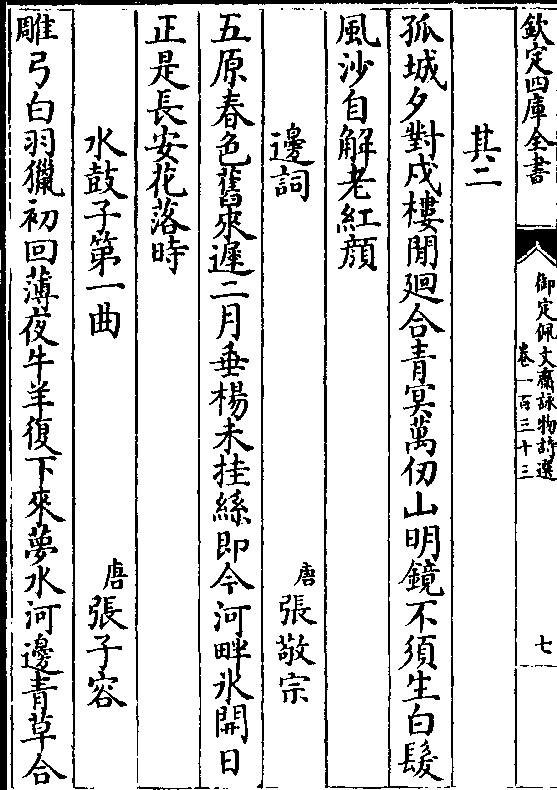 欽定四庫全書
御定佩文齋詠物詩選
卷一百三十三
七
其二
孤城夕對戍樓閒廻合青冥萬仞山明鏡不須生白髮
風沙自解老紅顔
邊詞
唐張敬宗
五原春色舊來遲二月垂楊未挂絲即今河畔氷開日
正是長安花落時
水鼓子第一曲
唐張子容
雕弓白羽獵初回薄夜牛羊復下來夢水河邊青草合